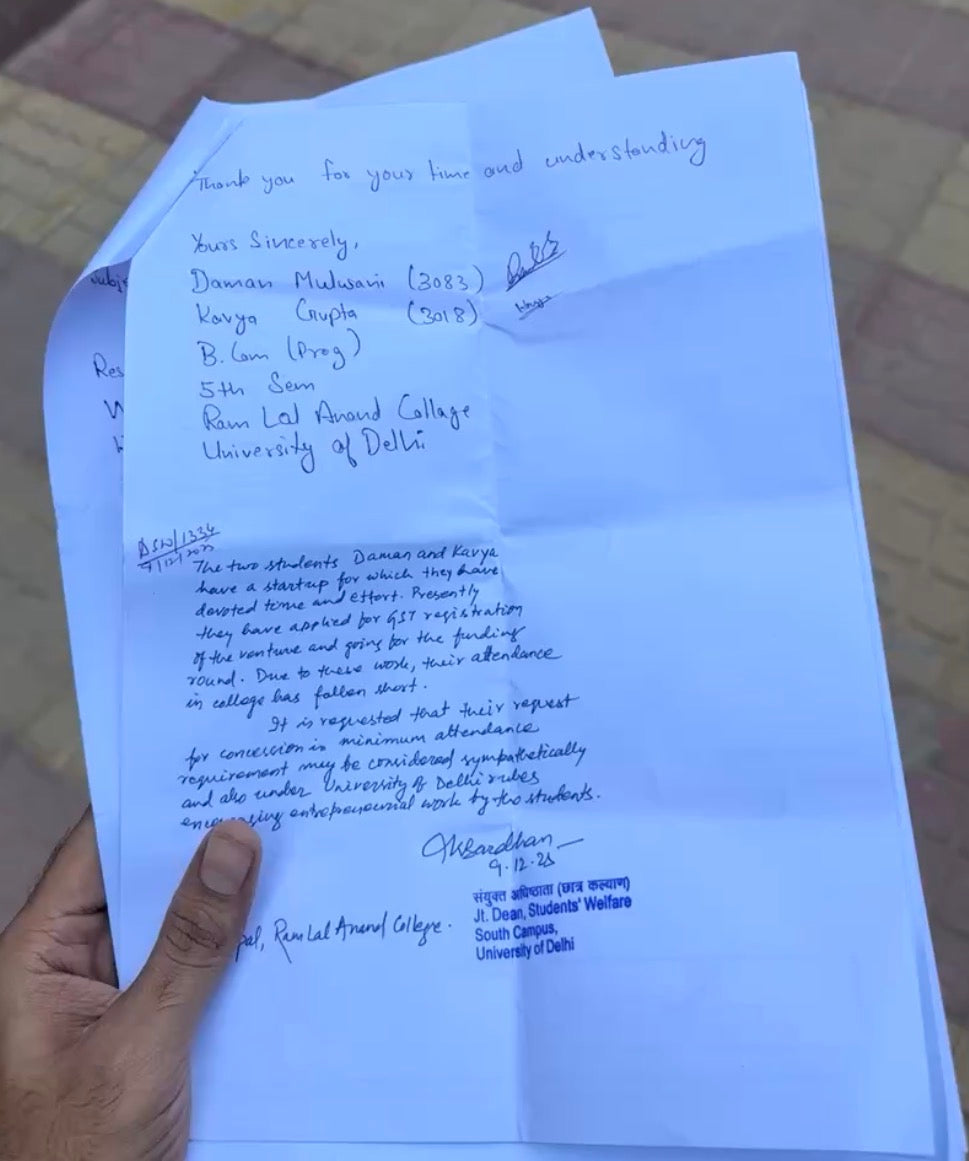 Thank you for your time and understanding
Yours Sincerely,
Daman Mulwani (3083)
Kavya Gupta (3018)
B. Com (Prog)
5th Sem
Ram Lal Anand Collage
University of Delhi
Subj
Res
W
DSW/1334
9/12/2025
The two students Daman and Kavya
have a startup for which they have
devoted time and effort. Presently
they have applied for GST registration
of the venture and going for the funding
round. Due to these work, their attendance
in college has fallen short.
It is requested that their request
for concession in minimum attendance
requirement may be considered sympathetically
and also under University of Delhi rules
entrepreneurial work by the students.
9.12.25
संयुक्त अधिष्ठाता (छात्र कल्याण)
Jt. Dean, Students' Welfare
South Campus,
University of Delhi
pal, Ram Lal Anand College.